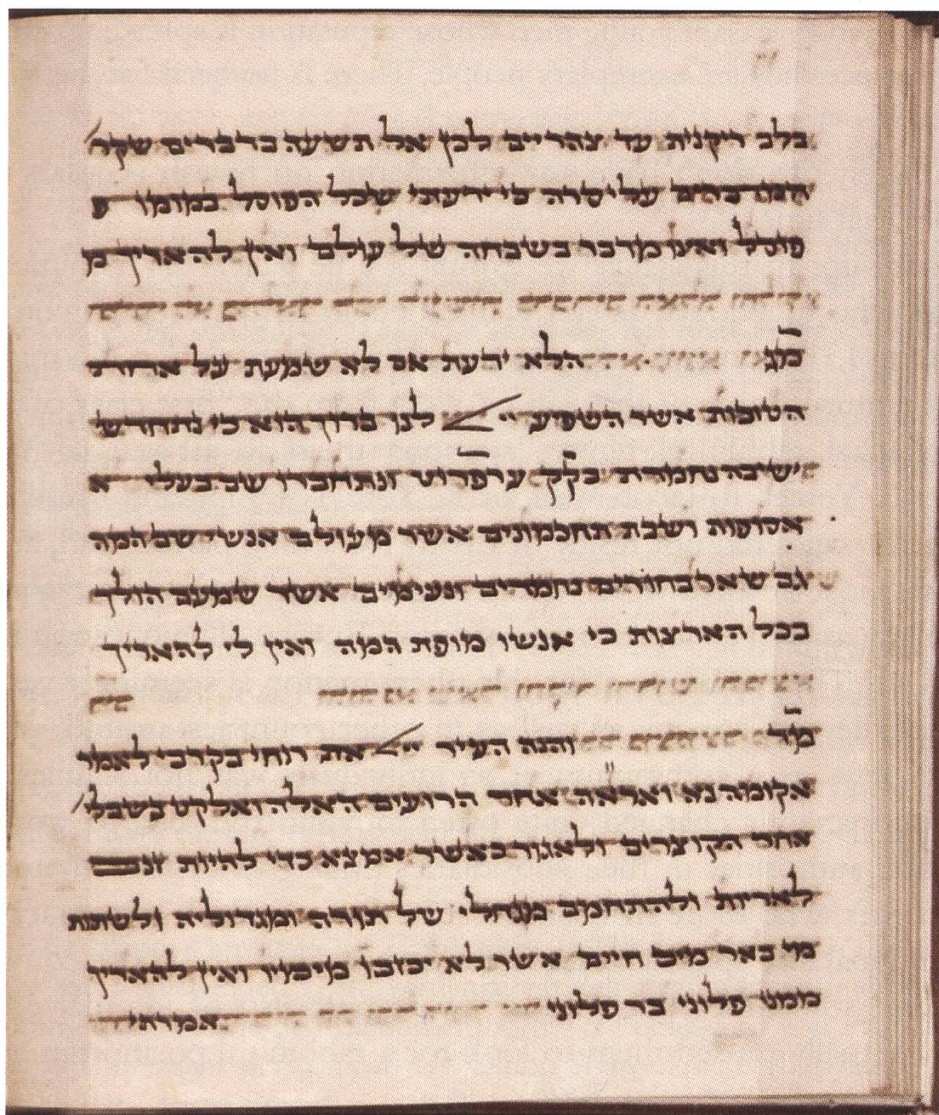 בלב ריקנית עד צהריים לכן אל תשעה בדברים שקר
המדברים על יסרה כי ידעתי שכל הפוסל במומו פ
פוסל ואינו מדבר בשבחה של עולם ואין להאריך מ
מג הלא ידעת אם לא שמעת על אודות
הטובות אשר השפיע ייי לנו ברוך הוא כי נתחדש
ישיבה נחמדת בקק ערפורט ונתחברו שם בעלי א
אסופות ושבת תחכמונים אשר מעולם אנשי שם המה
גם שאר בחורים נחמדים ונעימים אשר שמעם הולך
בכל הארצות כי אנשי מופת המה ואין לי להאריך
מד והנה העיר ייי את רוחי בקרבי לאמר
אקומה נא ואראה אחר הרועים האלה ואלקט בשבלי
אחר הקוצרים ולאגור כאשר אמצא כדי להיות זנב
לאריות ולהתחמם מגחלי של תורה ומגדוליה ולשתות
מי באר מים חיים אשר לא יכזבו מימיו ואין להאריך
ממני פלוני בר פלוני אמרתי